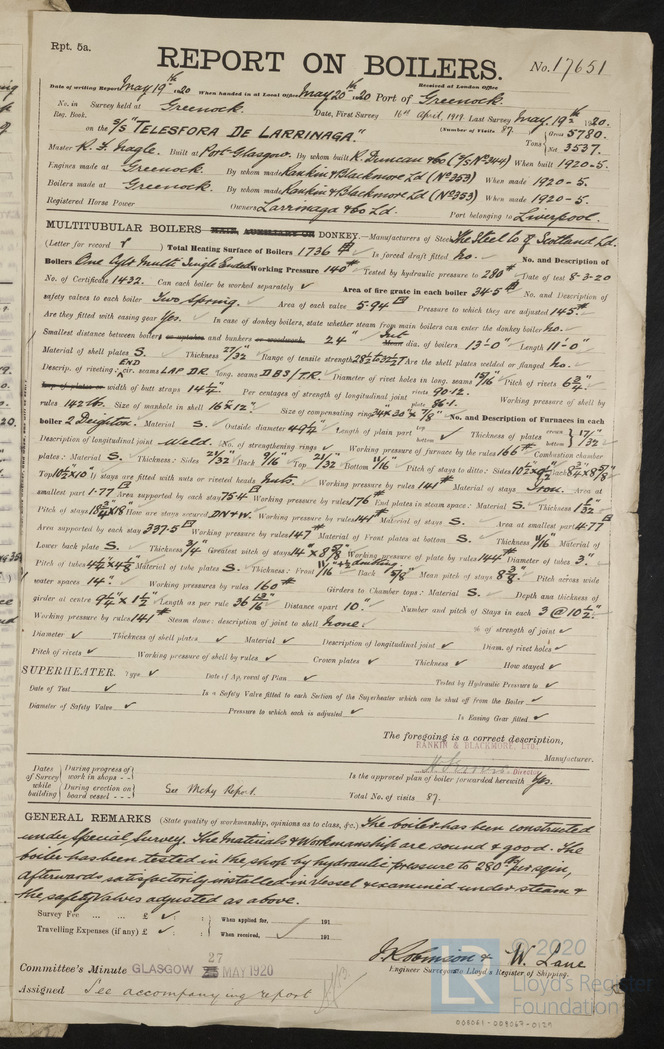 Rpt. 5a.
REPORT ON BOILERS.
No. 17651
Received at London Office
Date of writing Report May 19th 1920 When handed in at Local Office May 20th 1920 Port of Greenock.
No. in Survey held at Greenock. Date, First Survey 16th April, 1919 Last Survey May. 19th 1920.
Reg. Book. (Number of Visits 87.
on the S/S "TELESFORA DE LARRINAGA." Tons Gross 5780. Net 3537.
Master R. F. Nagle. Built at Port-Glasgow. By whom built R. Duncan & Co (S/S No 344) When built 1920-5.
Engines made at Greenock. By whom made Rankin & Blackmore Ld (No 353) When made 1920-5.
Boilers made at Greenock. By whom made Rankin & Blackmore Ld (No 353) When made 1920-5.
Registered Horse Power Owners Larrinaga & Co Ld. Port belonging to Liverpool.
MULTITUBULAR BOILERS MAIN, AUXILIARY OR DONKEY.—Manufacturers of Steel The Steel Co of Scotland Ld.
(Letter for record ) Total Heating Surface of Boilers 1736 Is forced draft fitted No. No. and Description of
Boilers One Cylr Multi Single Ended Working Pressure 140# Tested by hydraulic pressure to 280# Date of test 8-3-20
No. of Certificate 1432. Can each boiler be worked separately ✓ Area of fire grate in each boiler 34.5 No. and Description of
safety valves to each boiler Two Spring. Area of each valve 5.94 Pressure to which they are adjusted 145#
Are they fitted with easing gear Yes. In case of donkey boilers, state whether steam from main boilers can enter the donkey boiler No.
Smallest distance between boilers or uptakes and bunkers or woodwork 24" Int Mean dia. of boilers 13'-0" Length 11'-0"
Material of shell plates S. Thickness 27/32" Range of tensile strength 28½ to 32½ T Are the shell plates welded or flanged No.
Descrip. of riveting: cir. seams END LAP DR. long. seams DBS/T.R. Diameter of rivet holes in long. seams 15/16" Pitch of rivets 6¾"
lap of plates or width of butt straps 14¼" Per centages of strength of longitudinal joint rivets 90.12. plate 86.1. Working pressure of shell by
rules 142 lbs. Size of manhole in shell 16"x12" Size of compensating ring 34"x30"x⅞" No. and Description of Furnaces in each
boiler 2 Deighton. Material S. Outside diameter 49¼" Length of plain part top bottom Thickness of plates crown bottom 17/32"
Description of longitudinal joint Weld. No. of strengthening rings ✓ Working pressure of furnace by the rules 166# Combustion chamber
plates: Material S. Thickness: Sides 21/32" Back 9/16" Top 21/32" Bottom 11/16" Pitch of stays to ditto: Sides 10½"x9½" Back 8¾"x8⅝"
Top 10½"x10" If stays are fitted with nuts or riveted heads Nuts. Working pressure by rules 141# Material of stays Iron. Area at
smallest part 1.77 Area supported by each stay 75.4 Working pressure by rules 176# End plates in steam space: Material S. Thickness 1 1/32"
Pitch of stays 18¾"x18" How are stays secured DN&W. Working pressure by rules 141# Material of stays S. Area at smallest part 4.77
Area supported by each stay 337.5 Working pressure by rules 147# Material of Front plates at bottom S. Thickness 11/16" Material of
Lower back plate S. Thickness ¾" Greatest pitch of stays 14"x8⅝" Working pressure of plate by rules 144# Diameter of tubes 3".
Pitch of tubes 4½"x4½" Material of tube plates S. Thickness: Front 11/16" doubling Back 5/8" Mean pitch of stays 8⅜" Pitch across wide
water spaces 14". Working pressures by rules 160# Girders to Chamber tops: Material S. Depth and thickness of
girder at centre 9¼"x1½" Length as per rule 36 13/16" Distance apart 10". Number and pitch of Stays in each 3 @ 10½".
Working pressure by rules 141# Steam dome: description of joint to shell None. % of strength of joint ✓
Diameter ✓ Thickness of shell plates ✓ Material ✓ Description of longitudinal joint ✓ Diam. of rivet holes ✓
Pitch of rivets ✓ Working pressure of shell by rules ✓ Crown plates ✓ Thickness ✓ How stayed ✓
SUPERHEATER. Type ✓ Date of Approval of Plan ✓ Tested by Hydraulic Pressure to ✓
Date of Test ✓ Is a Safety Valve fitted to each Section of the Superheater which can be shut off from the Boiler ✓
Diameter of Safety Valve ✓ Pressure to which each is adjusted ✓ Is Easing Gear fitted ✓
The foregoing is a correct description,
RANKIN & BLACKMORE, LTD.
Manufacturer.
Director
Dates of Survey while building
During progress of work in shops - -
During erection on board vessel - - -
See Mchy Report.
Is the approved plan of boiler forwarded herewith Yes.
Total No. of visits 87.
GENERAL REMARKS (State quality of workmanship, opinions as to class, &c.) The boiler has been constructed
under Special Survey. The Materials & Workmanship are sound & good. The
boiler has been tested in the shop by hydraulic pressure to 280 lbs per sq in,
afterwards satisfactorily installed in Vessel & examined under steam &
the safety valves adjusted as above.
Survey Fee ... ... £ ✓ : : When applied for, 191
Travelling Expenses (if any) £ ✓ : : When received, 191
J. Robinson & W. Lane
Engineer Surveyors to Lloyd's Register of Shipping.
Committee's Minute GLASGOW 27 MAY 1920
Assigned See accompanying report
© 2020
Lloyd's Register
Foundation
LR
008061-008067-0129